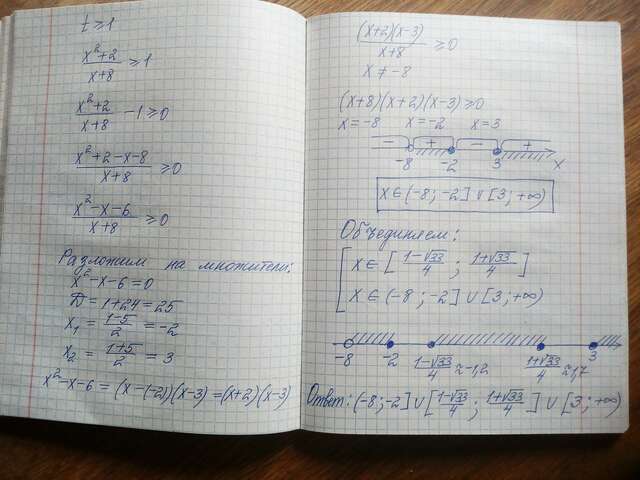 t ≥ 1
x²+2 / x+8 ≥ 1
x²+2 / x+8 − 1 ≥ 0
x²+2−x−8 / x+8 ≥ 0
x²−x−6 / x+8 ≥ 0
Разложим на множители:
x²−x−6=0
Д=1+24=25
x₁ = 1−5 / 2 = −2
x₂ = 1+5 / 2 = 3
x²−x−6 = (x−(−2))(x−3) = (x+2)(x−3)
(x+2)(x−3) / x+8 ≥ 0
x ≠ −8
(x+8)(x+2)(x−3) ≥ 0
x=−8 x=−2 x=3
− + − +
−8 −2 3 x
x ∈ (−8; −2] ∪ [3; +∞)
Объединяем:
[ x ∈ [ 1−√33 / 4 ; 1+√33 / 4 ]
x ∈ (−8; −2] ∪ [3; +∞)
−8 −2 1−√33 / 4 ≈ −1,2 1+√33 / 4 ≈ 1,7 3
Ответ: (−8; −2] ∪ [ 1−√33 / 4 ; 1+√33 / 4 ] ∪ [3; +∞)